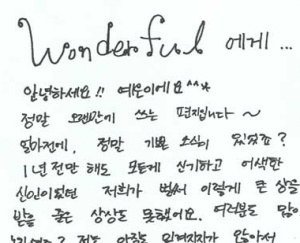 Wonderful 에게 ...
안녕하세요!! 예은이에요^^*
정말 오랜만에 쓰는 편지입니다~
얼마전에, 정말 기쁜 소식이 있었죠?
1년 전만 해도 모든게 신기하고 어색한
신인이었던 저희가 벌써 이렇게 큰 상을
받을 줄은 상상도 못했어요. 여러분도 많이
저는 아직도 믿겨지지가 않아서